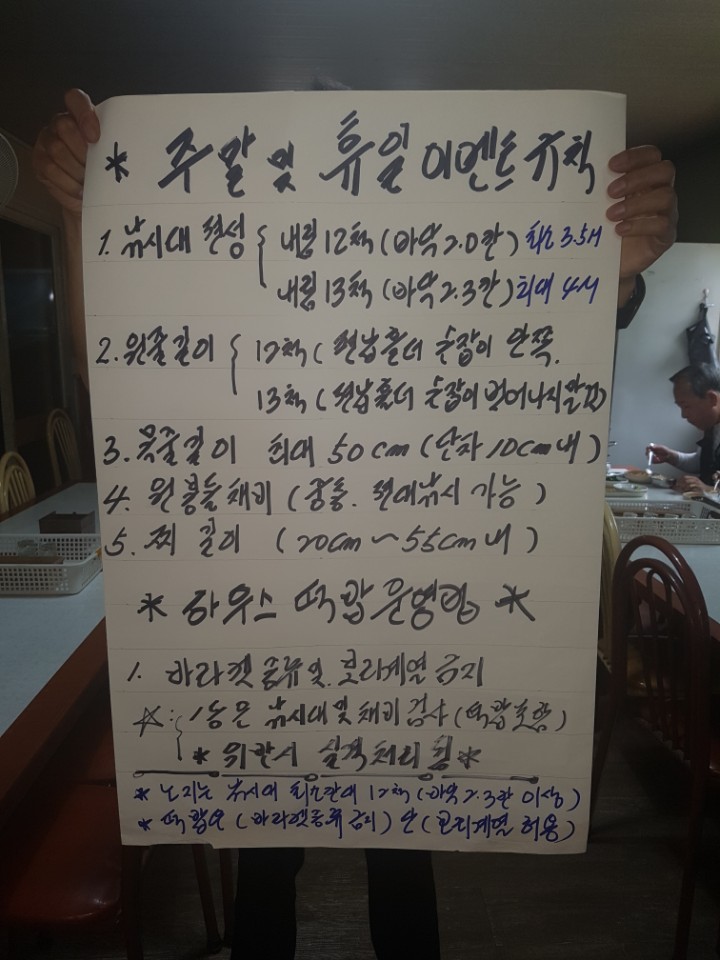 * 주말 및 휴일 이벤트 규칙
1. 낚시대 편성 { 내림 12척 (바닥 2.0칸) 최소 3.5M
내림 13척 (바닥 2.3칸) 최대 4M
2. 원줄길이 { 12척 (편납홀더 손잡이 안쪽.
13척 (편납홀더 손잡이 벗어나지말것)
3. 목줄길이 최대 50cm (단차 10cm 내)
4. 원봉돌채비 (중통. 편대낚시 가능)
5. 찌 길이 (20cm ~ 55cm 내)
* 하우스 떡밥 운영방 *
1. 바라켓 종류 및 보라계열 금지
☆: 1등은 낚시대 및 채비 검사 (떡밥 포함)
* 위반시 실격처리 됨 *
* 노지는 낚시대 최소칸이 12척 (바닥 2.3칸 이상)
* 떡밥은 (바라켓종류 금지) 단 (보라계열 허용)